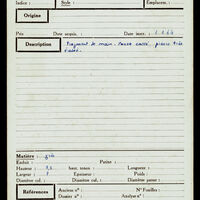 Index : Stole : Emplacem. :
Origine
Prix Date acquis. : Date inscr. : 1.1.64
Description Fragment de main. Pouce cassé, pierre très
Matière : grès
Enduit : Patine :
Hauteur : haut. tenon : Longueur :
Largeur : 7 Epaisseur : Poids :
Diamètre col. : Diamètre panse :
Références Anciens n° : N° Fouilles :
Dossier n° : Analyse n° :